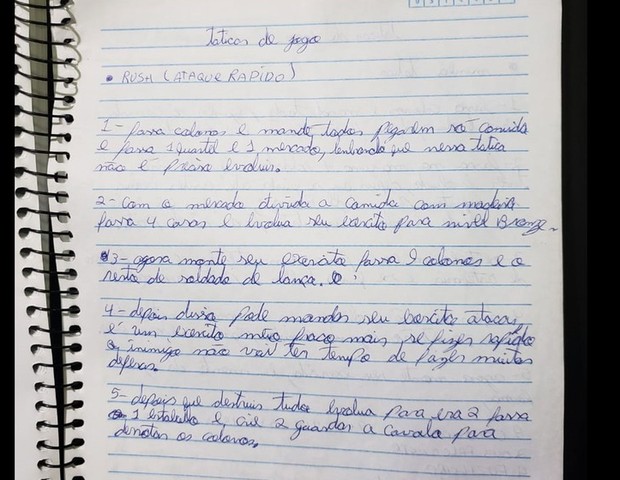 Taticas de jogo
• RUSH (ATAQUE RAPIDO)
1- faça colonos e mande todos pegarem só comida
e faça 1 quartel e 1 mercado, lembrando que nessa tatica
não é preciso evoluir.
2- com o mercado divida a comida com madeira
faça 4 casas e evolua seu exercito para nivel Bronze.
3- agora monte seu exercito faça 9 colonos e o
resto de soldado de lança.
4- depois disso pode mandar seu exercito atacar,
é um exercito meio fraco mais se fizer rapido
o inimigo não vai ter tempo de fazer muitas
defesas.
5- depois que destruir tudo evolua para era 2 faça
1 estabulo e crie 2 guardas a cavalo para
derrotar os colonos.